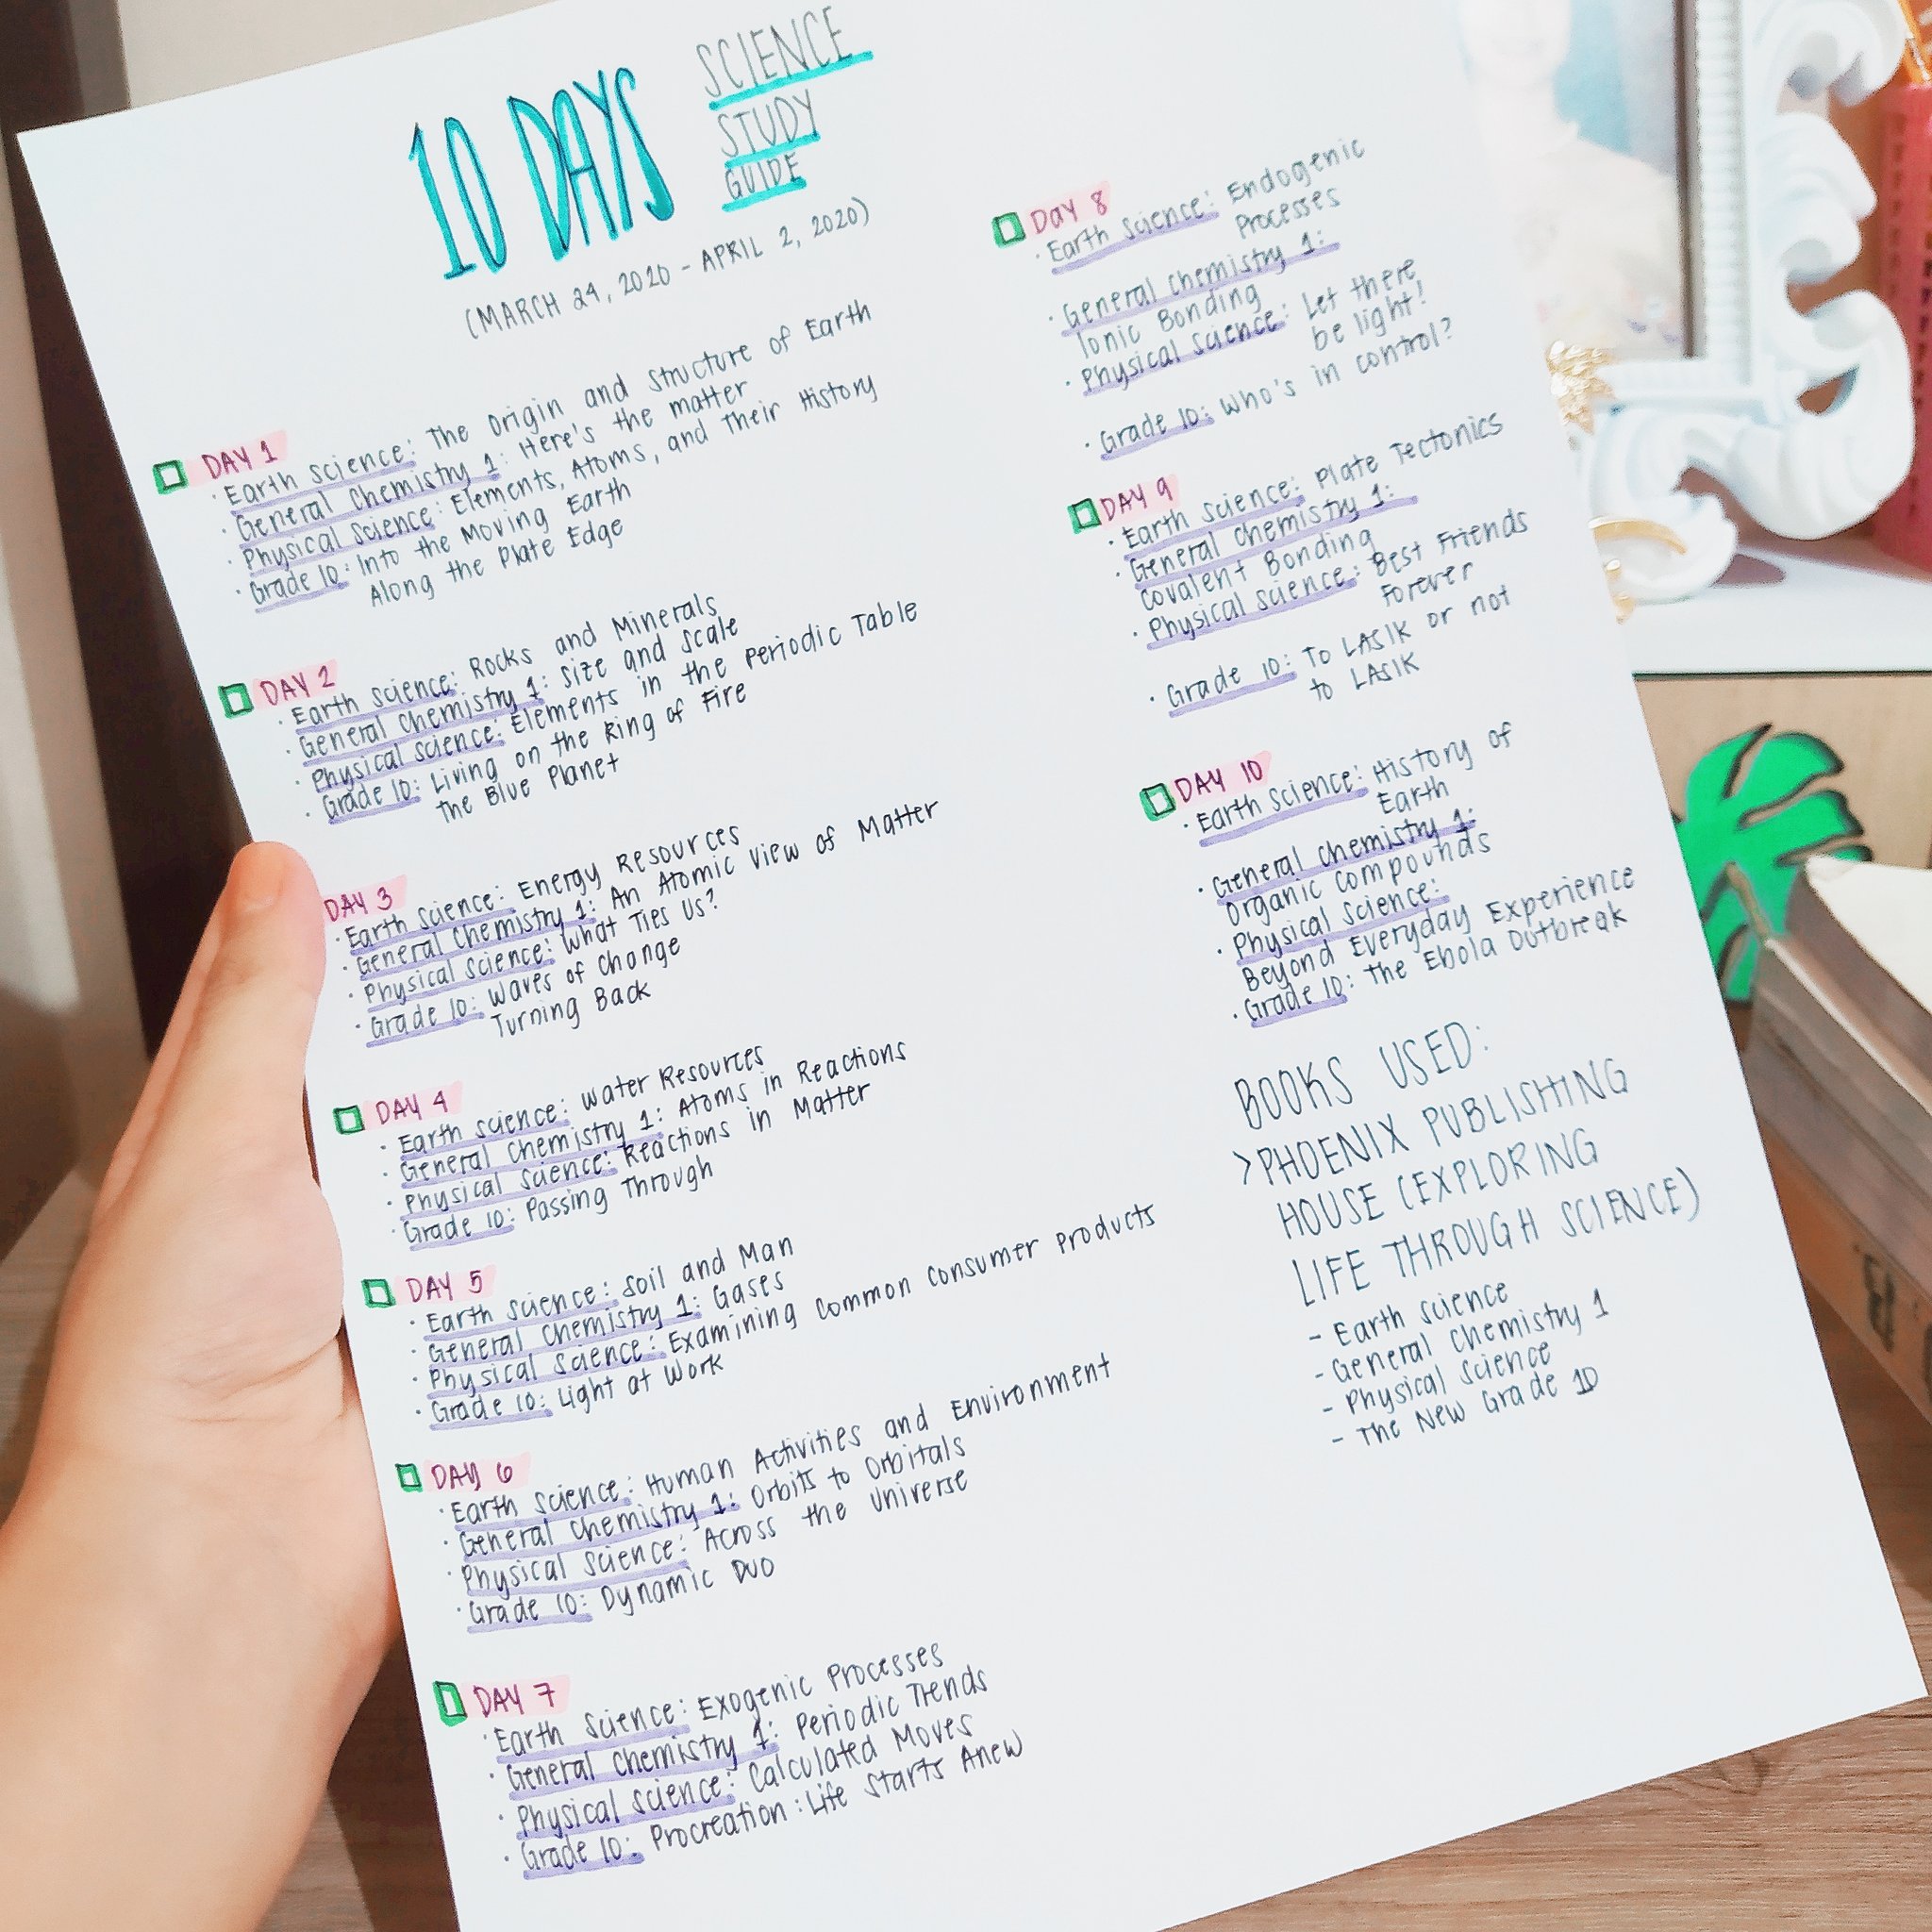 10 DAYS
SCIENCE
STUDY
GUIDE
(MARCH 24, 2020 - APRIL 2, 2020)
DAY 1
· Earth Science: The Origin and Structure of Earth
· General Chemistry 1: Here's the matter
· Physical Science: Elements, Atoms, and Their History
· Grade 10: Into the Moving Earth
Along the Plate Edge
DAY 2
· Earth Science: Rocks and Minerals
· General Chemistry 1: Size and Scale
· Physical Science: Elements in the Periodic Table
· Grade 10: Living on the Ring of Fire
The Blue Planet
DAY 3
· Earth Science: Energy Resources
· General Chemistry 1: An Atomic View of Matter
· Physical Science: What Ties Us?
· Grade 10: Waves of Change
Turning Back
DAY 4
· Earth Science: Water Resources
· General Chemistry 1: Atoms in Reactions
· Physical Science: Reactions in Matter
· Grade 10: Passing Through
DAY 5
· Earth Science: Soil and Man
· General Chemistry 1: Gases
· Physical Science: Examining Common Consumer Products
· Grade 10: Light at Work
DAY 6
· Earth Science: Human Activities and Environment
· General Chemistry 1: Orbits to Orbitals
· Physical Science: Across the Universe
· Grade 10: Dynamic Duo
DAY 7
· Earth Science: Exogenic Processes
· General Chemistry 1: Periodic Trends
· Physical Science: Calculated Moves
· Grade 10: Procreation: Life Starts Anew
DAY 8
· Earth Science: Endogenic
Processes
· General Chemistry 1:
Ionic Bonding
· Physical Science: Let there
be light!
· Grade 10: Who's in control?
DAY 9
· Earth Science: Plate Tectonics
· General Chemistry 1:
Covalent Bonding
· Physical Science: Best Friends
Forever
· Grade 10: To LASIK or not
to LASIK
DAY 10
· Earth Science: History of
Earth
· General Chemistry 1:
Organic Compounds
· Physical Science:
Beyond Everyday Experience
· Grade 10: The Ebola Outbreak
BOOKS USED:
>PHOENIX PUBLISHING
HOUSE (EXPLORING
LIFE THROUGH SCIENCE)
- Earth Science
- General Chemistry 1
- Physical Science
- The New Grade 10